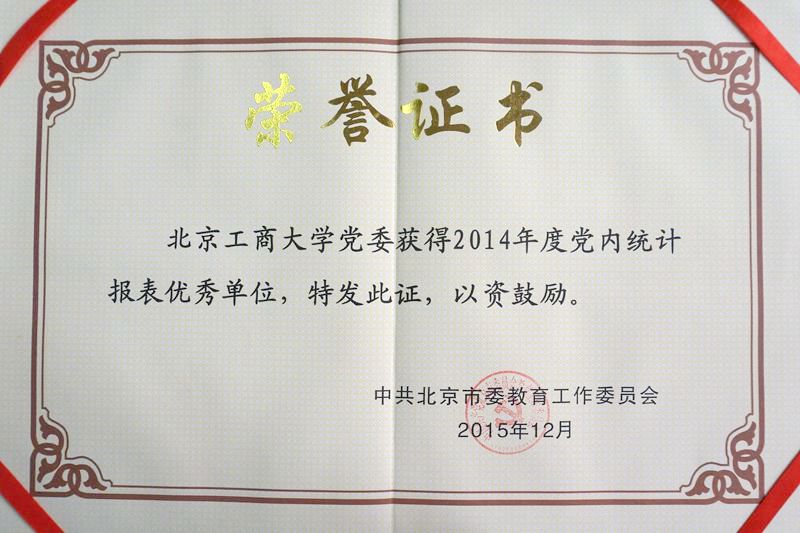 荣誉证书
北京工商大学党委获得2014年度党内统计
报表优秀单位，特发此证，以资鼓励。
中共北京市委教育工作委员会
2015年12月